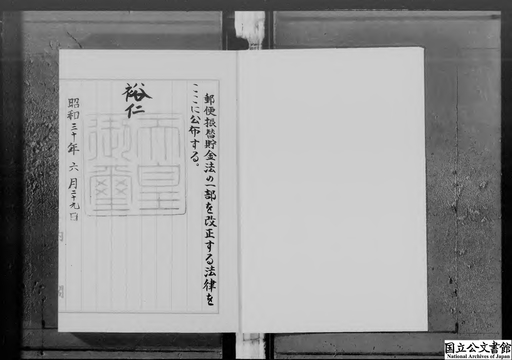 郵便振替貯金法の一部を改正する法律を
ここに公布する。
裕仁
天皇
御璽
昭和三十年六月二十九日
国立公文書館
National Archives of Japan